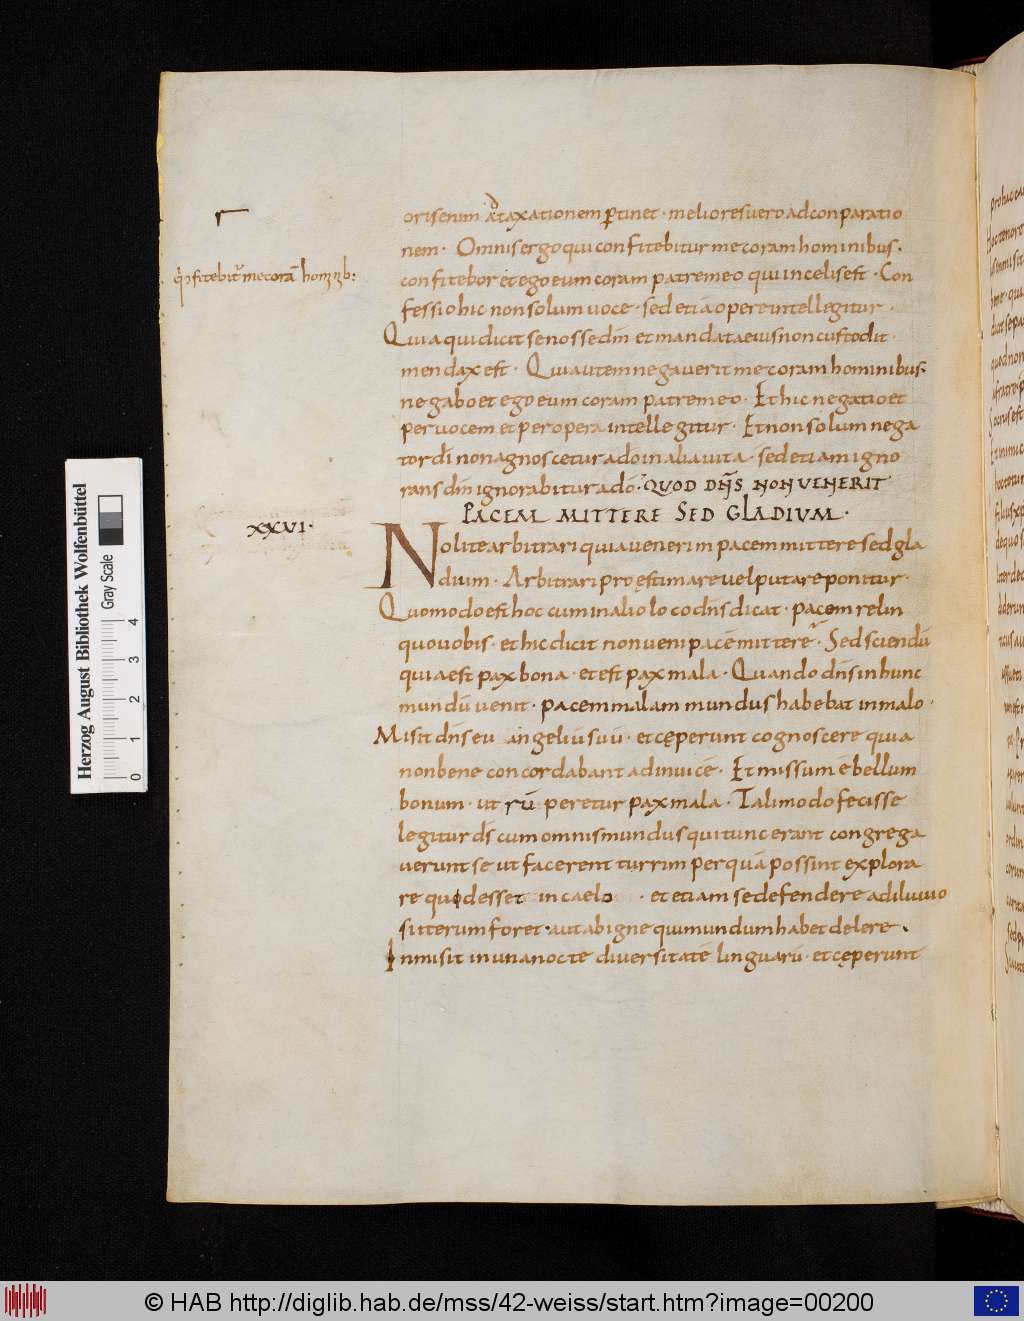 orisenim adtaxationem p̲tinet · meliores uero ad conparatio
nem · Omnis ergo qui confitebitur me coram hominibus ·
q̇ ↄfitebit᷑ me corā homīnib:
confitebor et ego eum coram patre meo qui in celis est · Con
fessio hic non solum uoce · sed etiā opere intellegitur ·
Quia qui dicit se nosse dm̄ et mandata eius non custodit ·
mendax est · Qui autem negauerit me coram hominibus ·
negabo et ego eum coram patre meo · Et hic negatio et
per uocem et per opera intellegitur · Et non solum nega
tor dī non agnoscetur a dō in alia uita · sed etiam igno
rans dm̄ ignorabitur a dō · QUOD DN̄S NON UENERIT
PACEM MITTERE SED GLADIUM ·
XXVI ·
Nolite arbitrari quia uenerim pacem mittere sed gla
dium · Arbitrari pro ęstimare uel putare ponitur ·
Quomodo est hoc cum in alio loco dn̄s dicat · pacem relin
quo uobis · et hic dicit non ueni pacē mittere · Sed sciendū
quia est pax bona · et est pax mala · Quando dn̄s in hunc
mundū uenit · pacem malam mundus habebat in malo ·
Misit dn̄s eu angeliū suū · et cęperunt cognoscere quia
non bene concordabant ad inuicē · Et missum ē bellum
bonum · ut rū peretur pax mala · Tali modo fecisse
legitur dī cum omnis mundus qui tunc erant congrega
uerunt se ut facerent turrim per quā possint explora
re quid esset in caelo · et etiam se defendere a diluuio
si iterum foret · aut ab igne qui mundum habet delere ·
Inmisit in una nocte diuersitatē linguarū · et cęperunt
Herzog August Bibliothek Wolfenbüttel
Gray Scale
0 1 2 3 4
© HAB http://diglib.hab.de/mss/42-weiss/start.htm?image=00200